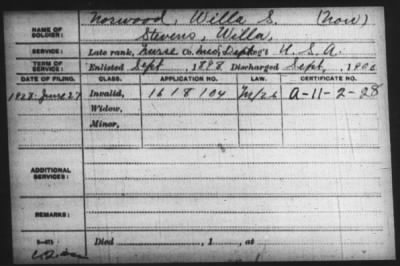 Norwood, Willa S. (Now)
NAME OF SOLDIER: Stevens, Willa,
SERVICE: Late rank, Nurse Co. Med. Dept Reg't U.S.A.
TERM OF SERVICE: Enlisted Sept, 1898 Discharged Sept, 190
DATE OF FILING. CLASS. APPLICATION NO. LAW. CERTIFICATE NO.
1928 June 27 Invalid, 1618104 A-11-2-28
Widow,
Minor,
ADDITIONAL SERVICES:
REMARKS:
Died , 1 , at